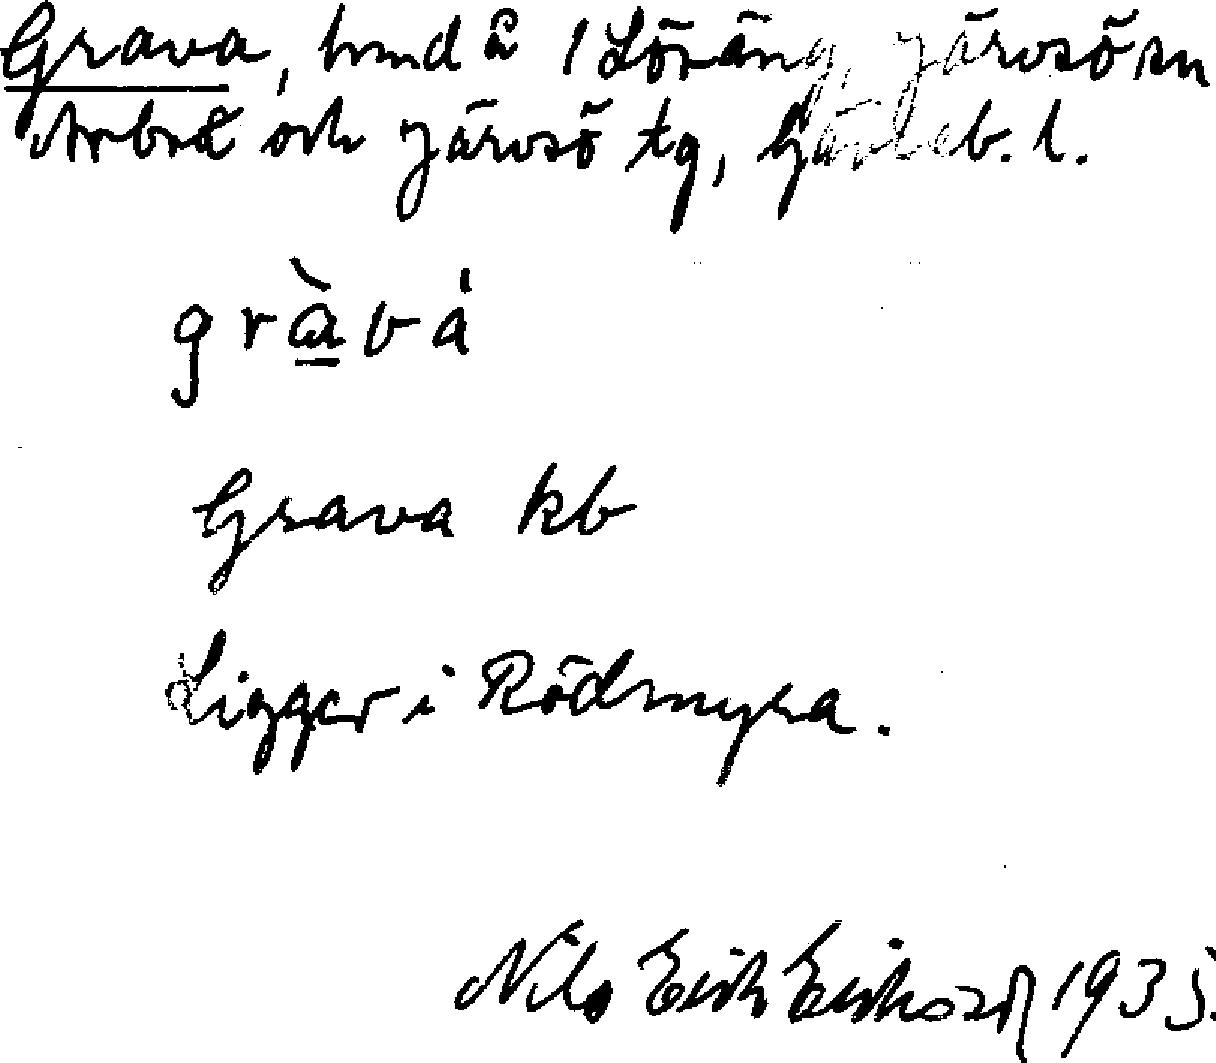 Grava, hmd å 1 Löräng, Järvsö sn
Arbrå och Järvsö tg, Gävleb. l.
gràvȧ
Grava kb
Ligger i Rödmyra.
Nils Erik Eriksson 1935.